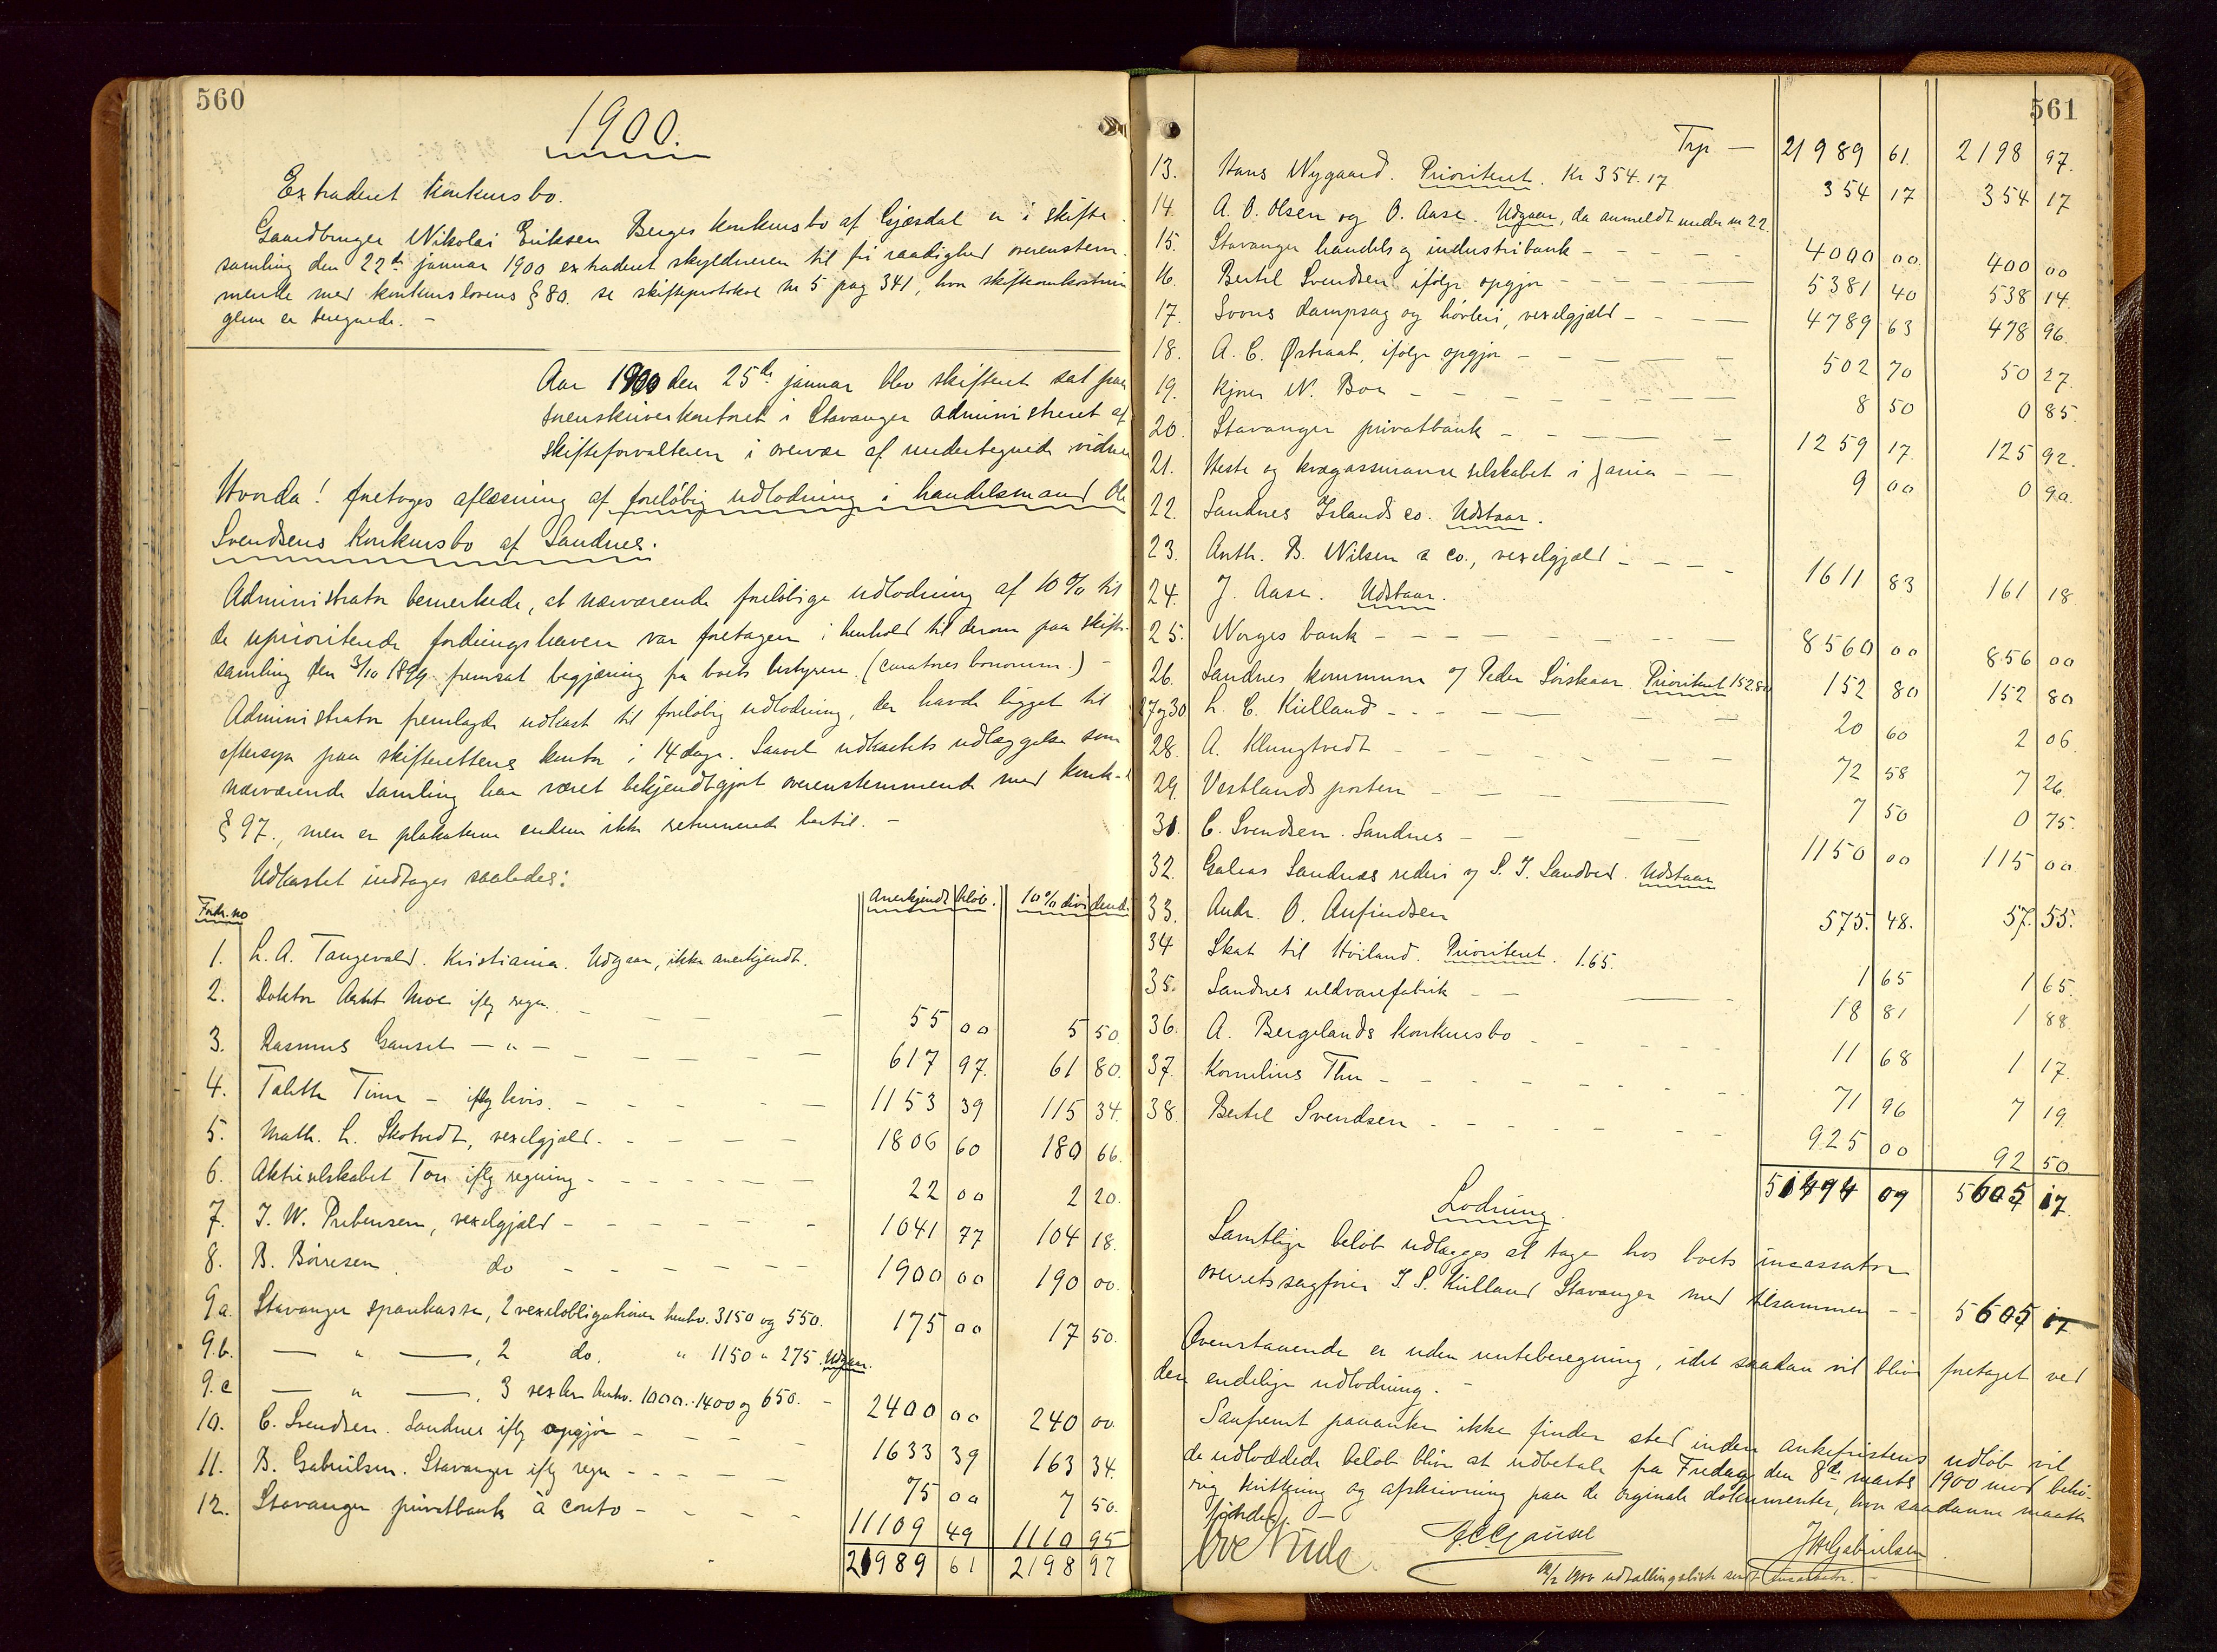 560
1900.
Extraderet konkursbo.
Gaardbruger Nikolai Eriksen Berges konkursbo af Gjæsdal er i skifte
samling den 22de januar 1900 extraderet skyldneren til fri raadighed overenstem
mende med konkurslovens § 80. se skifteprotokol no 5 pag 341, hvor skifteomkostnin
gerne er beregnede. –
Aar 1900 den 25de januar blev skifteret sat paa
sorenskriverkontoret i Stavanger administreret af
skifteforvalteren i overvær af undertegnede vidner
Hvorda! foretoges aflæsning af foreløbig udlodning i handelsmand Ole
Svendsens konkursbo af Sandnes.
Administrator bemerkede, at nærværende foreløbige udlodning af 10 % til
de uprioriterede fordringshavere var foretagen i henhold til derom paa skifte-
samling den 3/10 1899 fremsat begjæring fra boets bestyrere (curatores bonorum.) –
Administrator fremlagde udkast til foreløbig udlodning, der havde ligget til
eftersyn paa skifterettens kontor i 14 dage. Saavel udkastets udlæggelse som
nærværende samling har været bekjendtgjort overenstemmende med konk-l
§ 97., men er plakaterne endnu ikke returnerede hertil. –
Udkastet indtages saaledes:
Fordr. no Anerkjendt beløb. 10 % dividende
1. L. A. Tangevald. Kristiania. Udgaar, ikke anerkjendt.
2. Doktor Moe iflg regn. – – – – 55 00 5 50
3. Rasmus Gauset – " – – – – – 617 97. 61 80.
4. Talette Time – iflg bevis. – – – – 1153 39 115 34.
5. Math. L. Skotvedt, vexelgjæld. – – – – 1806 60 180 66.
6. Aktieselskabet Tou iflg regning – – – – 22 00 2 20.
7. J. W. Prebensen, vexelgjæld – – – – 1041 77 104 18.
8. B. Børresen. do – – – – 1900 00 190 00.
9a. Stavanger sparekasse, 2 vexelobligationer henhv. 3150 og 550. 175 00 17 50.
9.b. — " —, 2 do. " 1150 " 275. Udgaar.
9.c — " —, 3 vexler henhv. 1000.-1400 og 650. – 2400 00 240 00.
10. C. Svendsen. Sandnes iflg opgjør – – – – 1633 39 163 34.
11. B. Gabrielsen. Stavanger iflg regn – – – – 75 00 7 50.
12. Stavanger privatbank à conto – – – – 11109 49 1110 95
21989 61 2198 97
561
Trp — 21989 61. 2198 97.
13. Hans Nygaard. Prioriteret. Kr 354.17 354 17 354 17
14. A. O. Olsen og O. Aase. Udgaar, da anmeldt under no 22.
15. Stavanger handels og industribank – – – – 4000 00 400 00
16. Bertel Svendsen ifølge opgjør – – – – 5381 40 538 14.
17. dampsag og høvleri, vexelgjæld – – – – 4789 63 478 96.
18. A. C. Østraat, ifølge opgjør – – – – 502 70 50 27.
19. Kjøn N. Boe – – – – 8 50 0 85.
20. Stavanger privatbank – – – – 1259 17. 125 92.
21. Heste og kvægassurance selskabet i – – 9 00 0 90.
22. Sandnes Islands co. Udstaar.
23. Anth. B. Nilsen & co., vexelgjæld – – – – 1611 83 161 18
24. J. Aase. Udstaar.
25. Norges bank – – – – 8560 00 856 00
26. Sandnes kommune v/ Peder Sørskaar. Prioriteret 152.80 152 80 152 80
27 og 30 L. C. Kielland – – – – 20 60 2 06.
28. A. Klungtvedt – – – – 72 58 7 26.
29. Vestlandsposten – – – – 7 50 0 75.
31. C. Svendsen. Sandnes – – – – 1150 00 115 00
32. Galeas Sandnæs rederi v/ S. J. Sandved. Udstaar
33. Andr. O. Aufindsen 575. 48. 57. 55.
34 Skat til Høiland. Prioriteret. 1.65. 1 65 1 65.
35. Sandnes uldvarefabrik – – – – 18 81 1 88
36. A. Bergelands konkursbo – – – – 11 68 1 17.
37. Kornelius Thu – – – – 71 96 7 19.
38. Bertel Svendsen – – – – 925 00 92 50
51494 09 5605 17.
Lodning.
Samtlige beløb udlægges at tage hos boets incassator
overretssagfører J. S. Kielland Stavanger med tilsammen – – 5605 17
Ovenstaaende er uden renteberegning, idet saadan vil blive foretaget ved
den endelige udlodning. –
Saafremt paaanke ikke finder sted inden ankefristens udløb vil
de udloddede beløb blive at udbetale fra Fredag den 8de marts 1900 mod behø-
rig kvittering og afskrivning paa de orginale dokumenter, hvor saadanne maatte
findes. –0–
J. Gabrielsen
1900 udtællingsliste sendt incassator. –